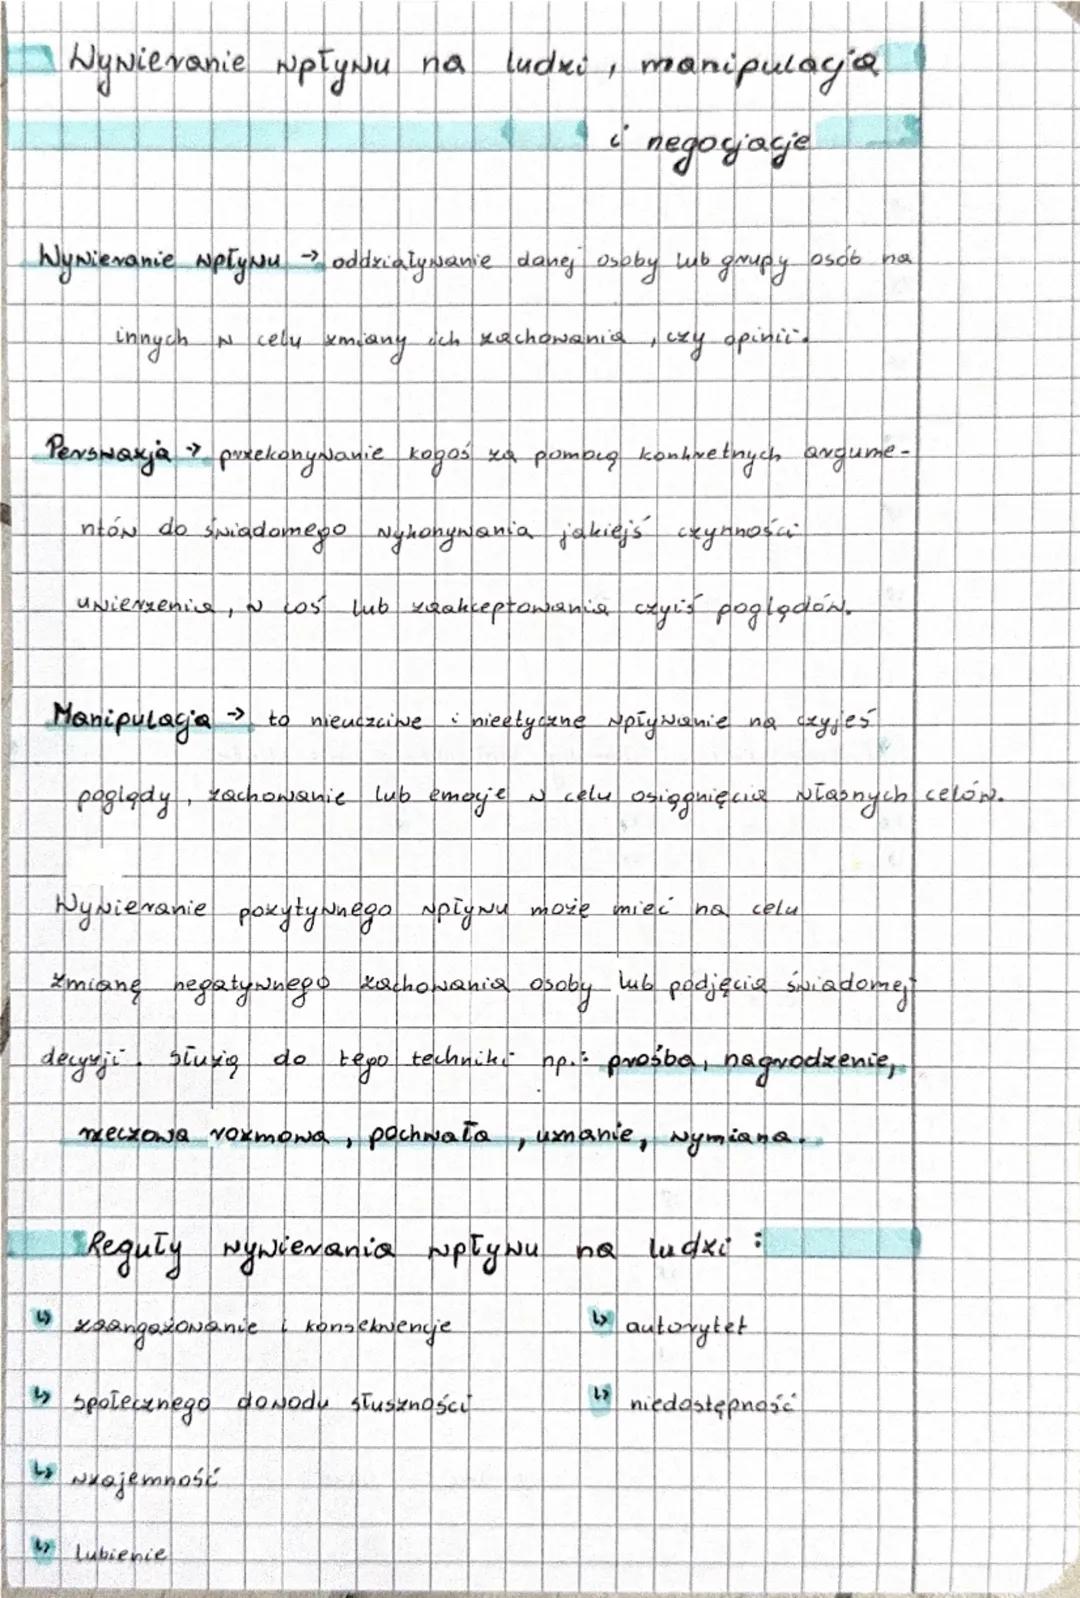 Wywieranie wpływu na ludzi, manipulacja
i negocjacje
Wywieranie wpływu → oddziaływanie danej osoby lub grupy osób na
innych w celu zmiany ich zachowania, czy opinii.
Perswazja → przekonywanie kogoś za pomocą konkretnych argume-
ntów do świadomego wykonywania jakiejś czynności
uwierzenia, w coś lub zaakceptowania czyiś poglądów.
Manipulacja → to nieuczciwe i nieetyczne wpływanie na czyjeś
poglądy, zachowanie lub emocje w celu osiągnięcia własnych celów.
Wywieranie pozytywnego wpływu może mieć na celu
zmianę negatywnego zachowania osoby lub podjęcia świadomej
decyzji. Służą do tego techniki np.: prośba, nagrodzenie,
rzeczowa rozmowa, pochwała, uznanie, wymiana.
Reguły wywierania wpływu na ludzi:
↳ zaangażowanie i konsekwencje ↳ autorytet
↳ społecznego dowodu słuszności ↳ niedostępność
↳ wzajemność
↳ lubienie